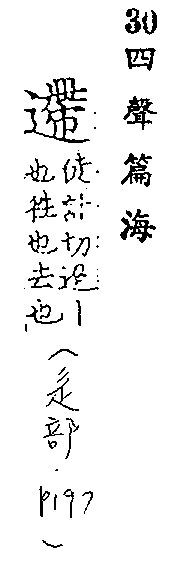 30四聲篇海
遰
徒計切迢丨
也徃也去也
（辵部.p197）